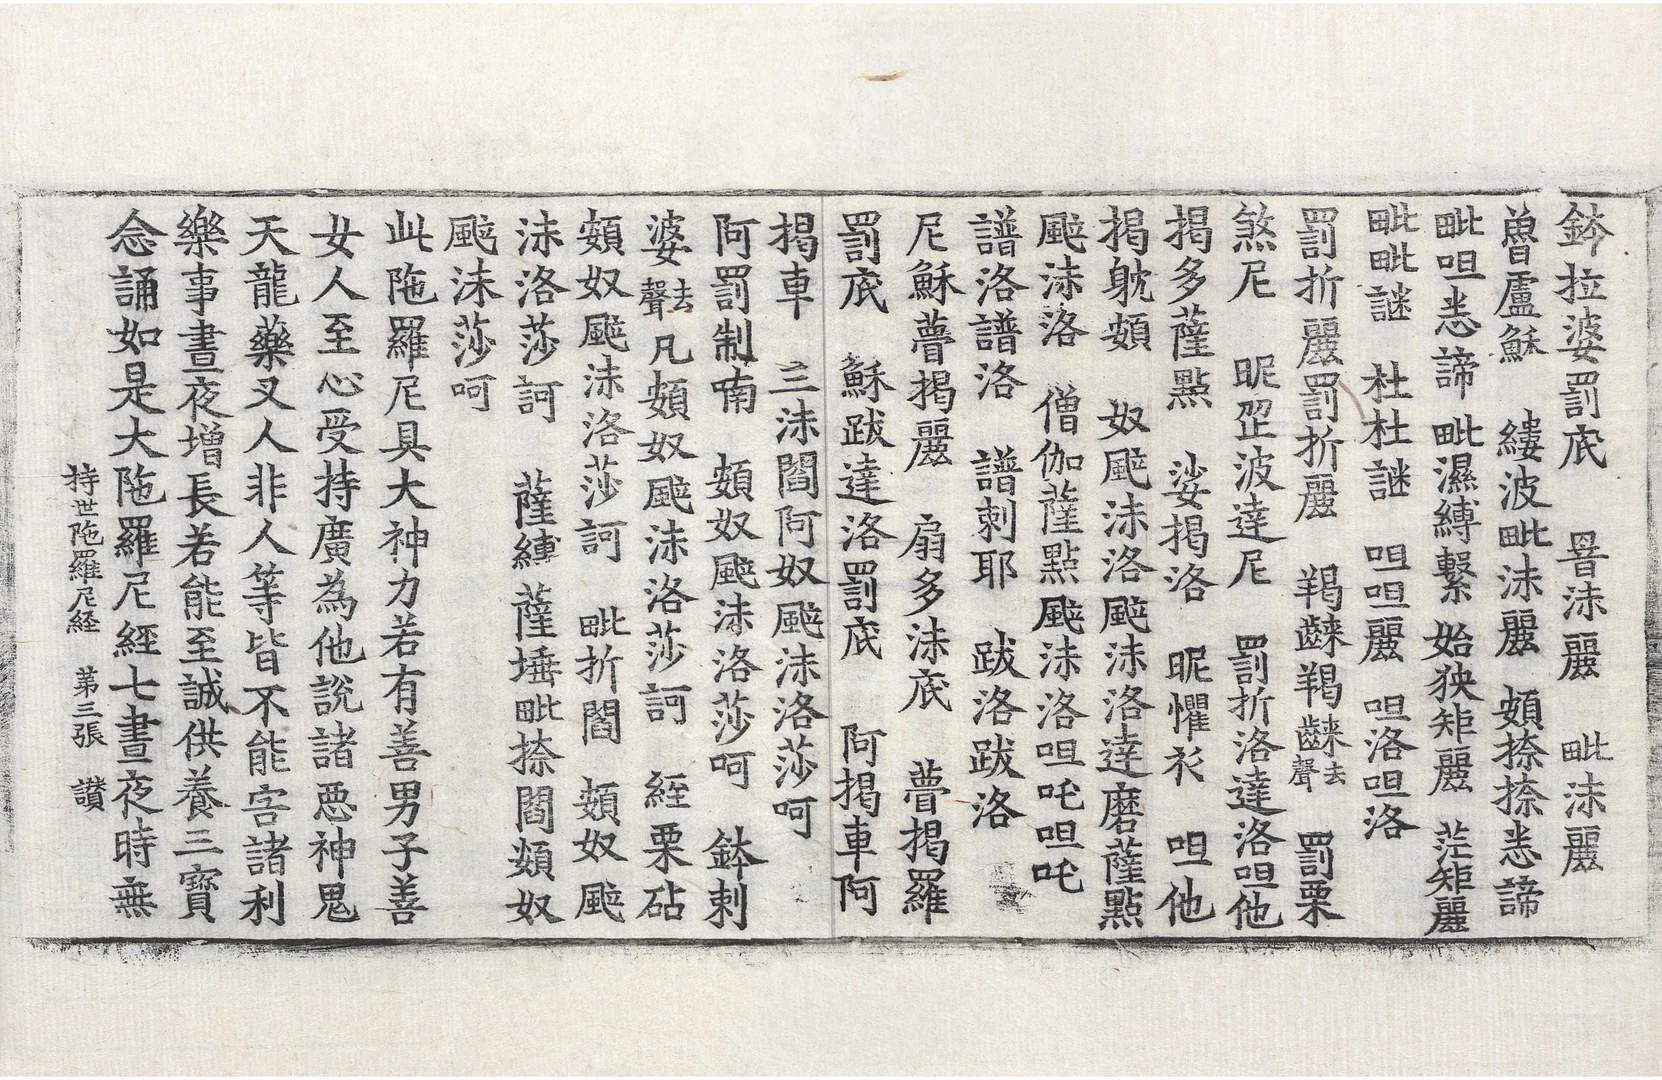 鉢拉婆罰底 暜沫麗 毗沫麗
魯盧穌 縷波毗沫麗 頞捺捺恙諦
毗呾恙諦 毗濕縛繫 始狹矩麗 茫矩麗
毗毗謎 杜杜謎 呾呾麗 呾洛呾洛
罰折麗罰折麗 羯齂羯齂去聲 罰栗
煞尼 昵涩波達尼 罰折洛達洛呾他
揭多薩點 娑揭洛 昵懼衫 呾他
揭躭頞 奴颰沫洛颰沫洛達磨薩點
颰沫洛 僧伽薩點颰沫洛呾吒呾吒
譜洛譜洛 譜剌耶 跋洛跋洛
尼穌瞢揭麗 扇多沫底 瞢揭羅
罰底 穌跋達洛罰底 阿揭車阿
揭車 三沫閻阿奴颰沫洛莎呵
阿罰制喃 頞奴颰沫洛莎呵 鉢剌
婆去聲凡頞奴颰沫洛莎訶 絰栗砧
頞奴颰沫洛莎訶 毗折閻 頞奴颰
沫洛莎訶 薩縛薩埵毗捺閻頞奴
颰沫莎呵
此陁羅尼具大神力若有善男子善
女人至心受持廣為他說諸惡神鬼
天龍藥叉人非人等皆不能害諸利
樂事晝夜增長若能至誠供養三寶
念誦如是大陁羅尼經七晝夜時無
持世陁羅尼経 苐三張 讃